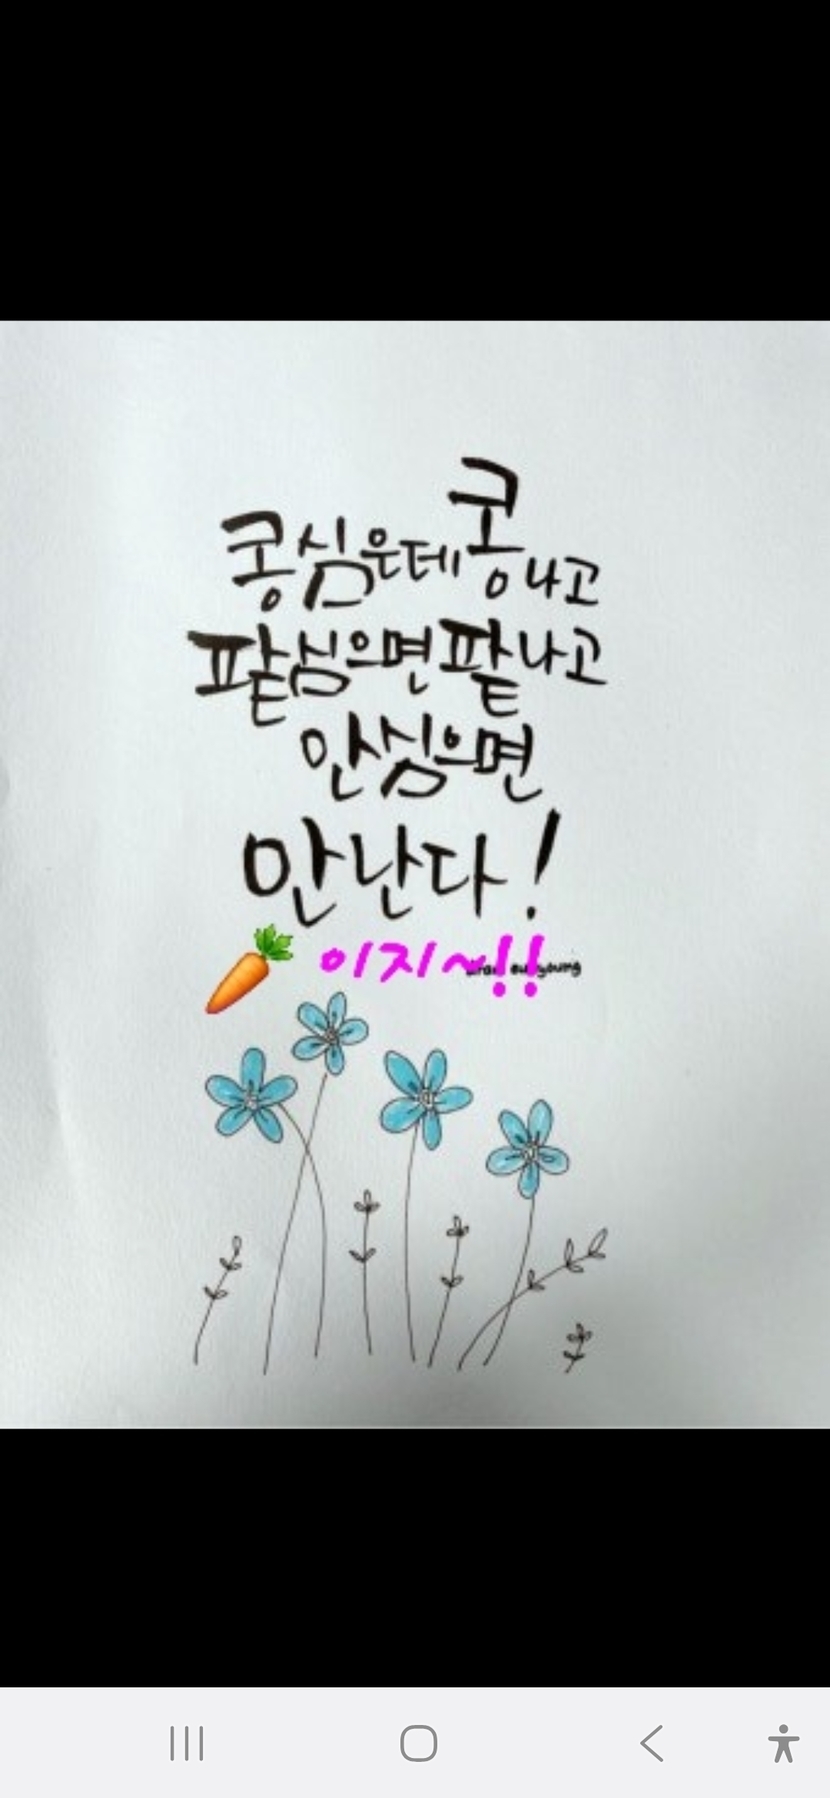 콩심은데콩나고
팥심으면팥나고
안심으면
안난다!
이지~!!